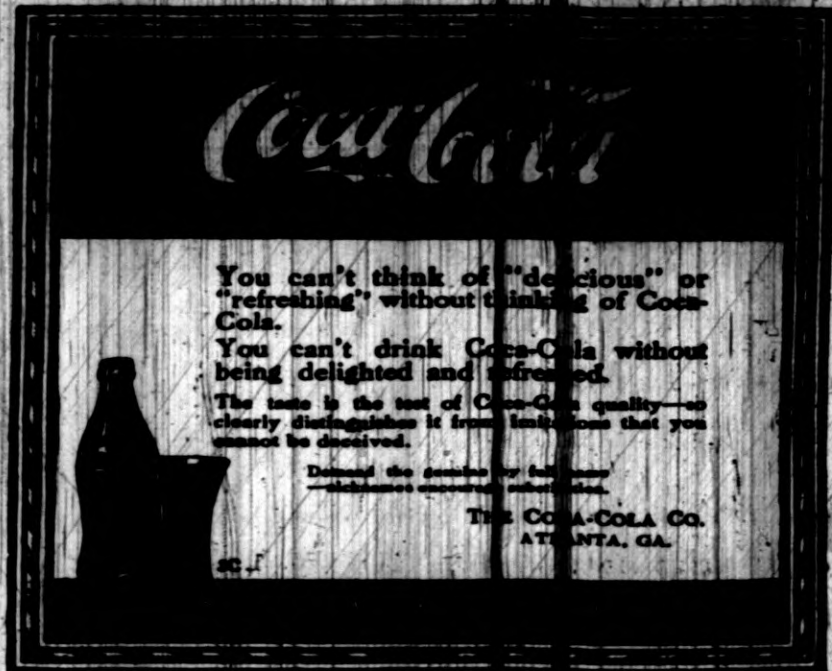 Coca-Cola
You can't think of "delicious" or
"refreshing" without thinking of Coca-
Cola.
You can't drink Coca-Cola without
being delighted and refreshed.
The taste is the test of Coca-Cola quality—so
clearly distinguishes it from imitations that you
cannot be deceived.
Demand the genuine by full name
—nicknames encourage substitution.
THE COCA-COLA CO.
ATLANTA, GA.